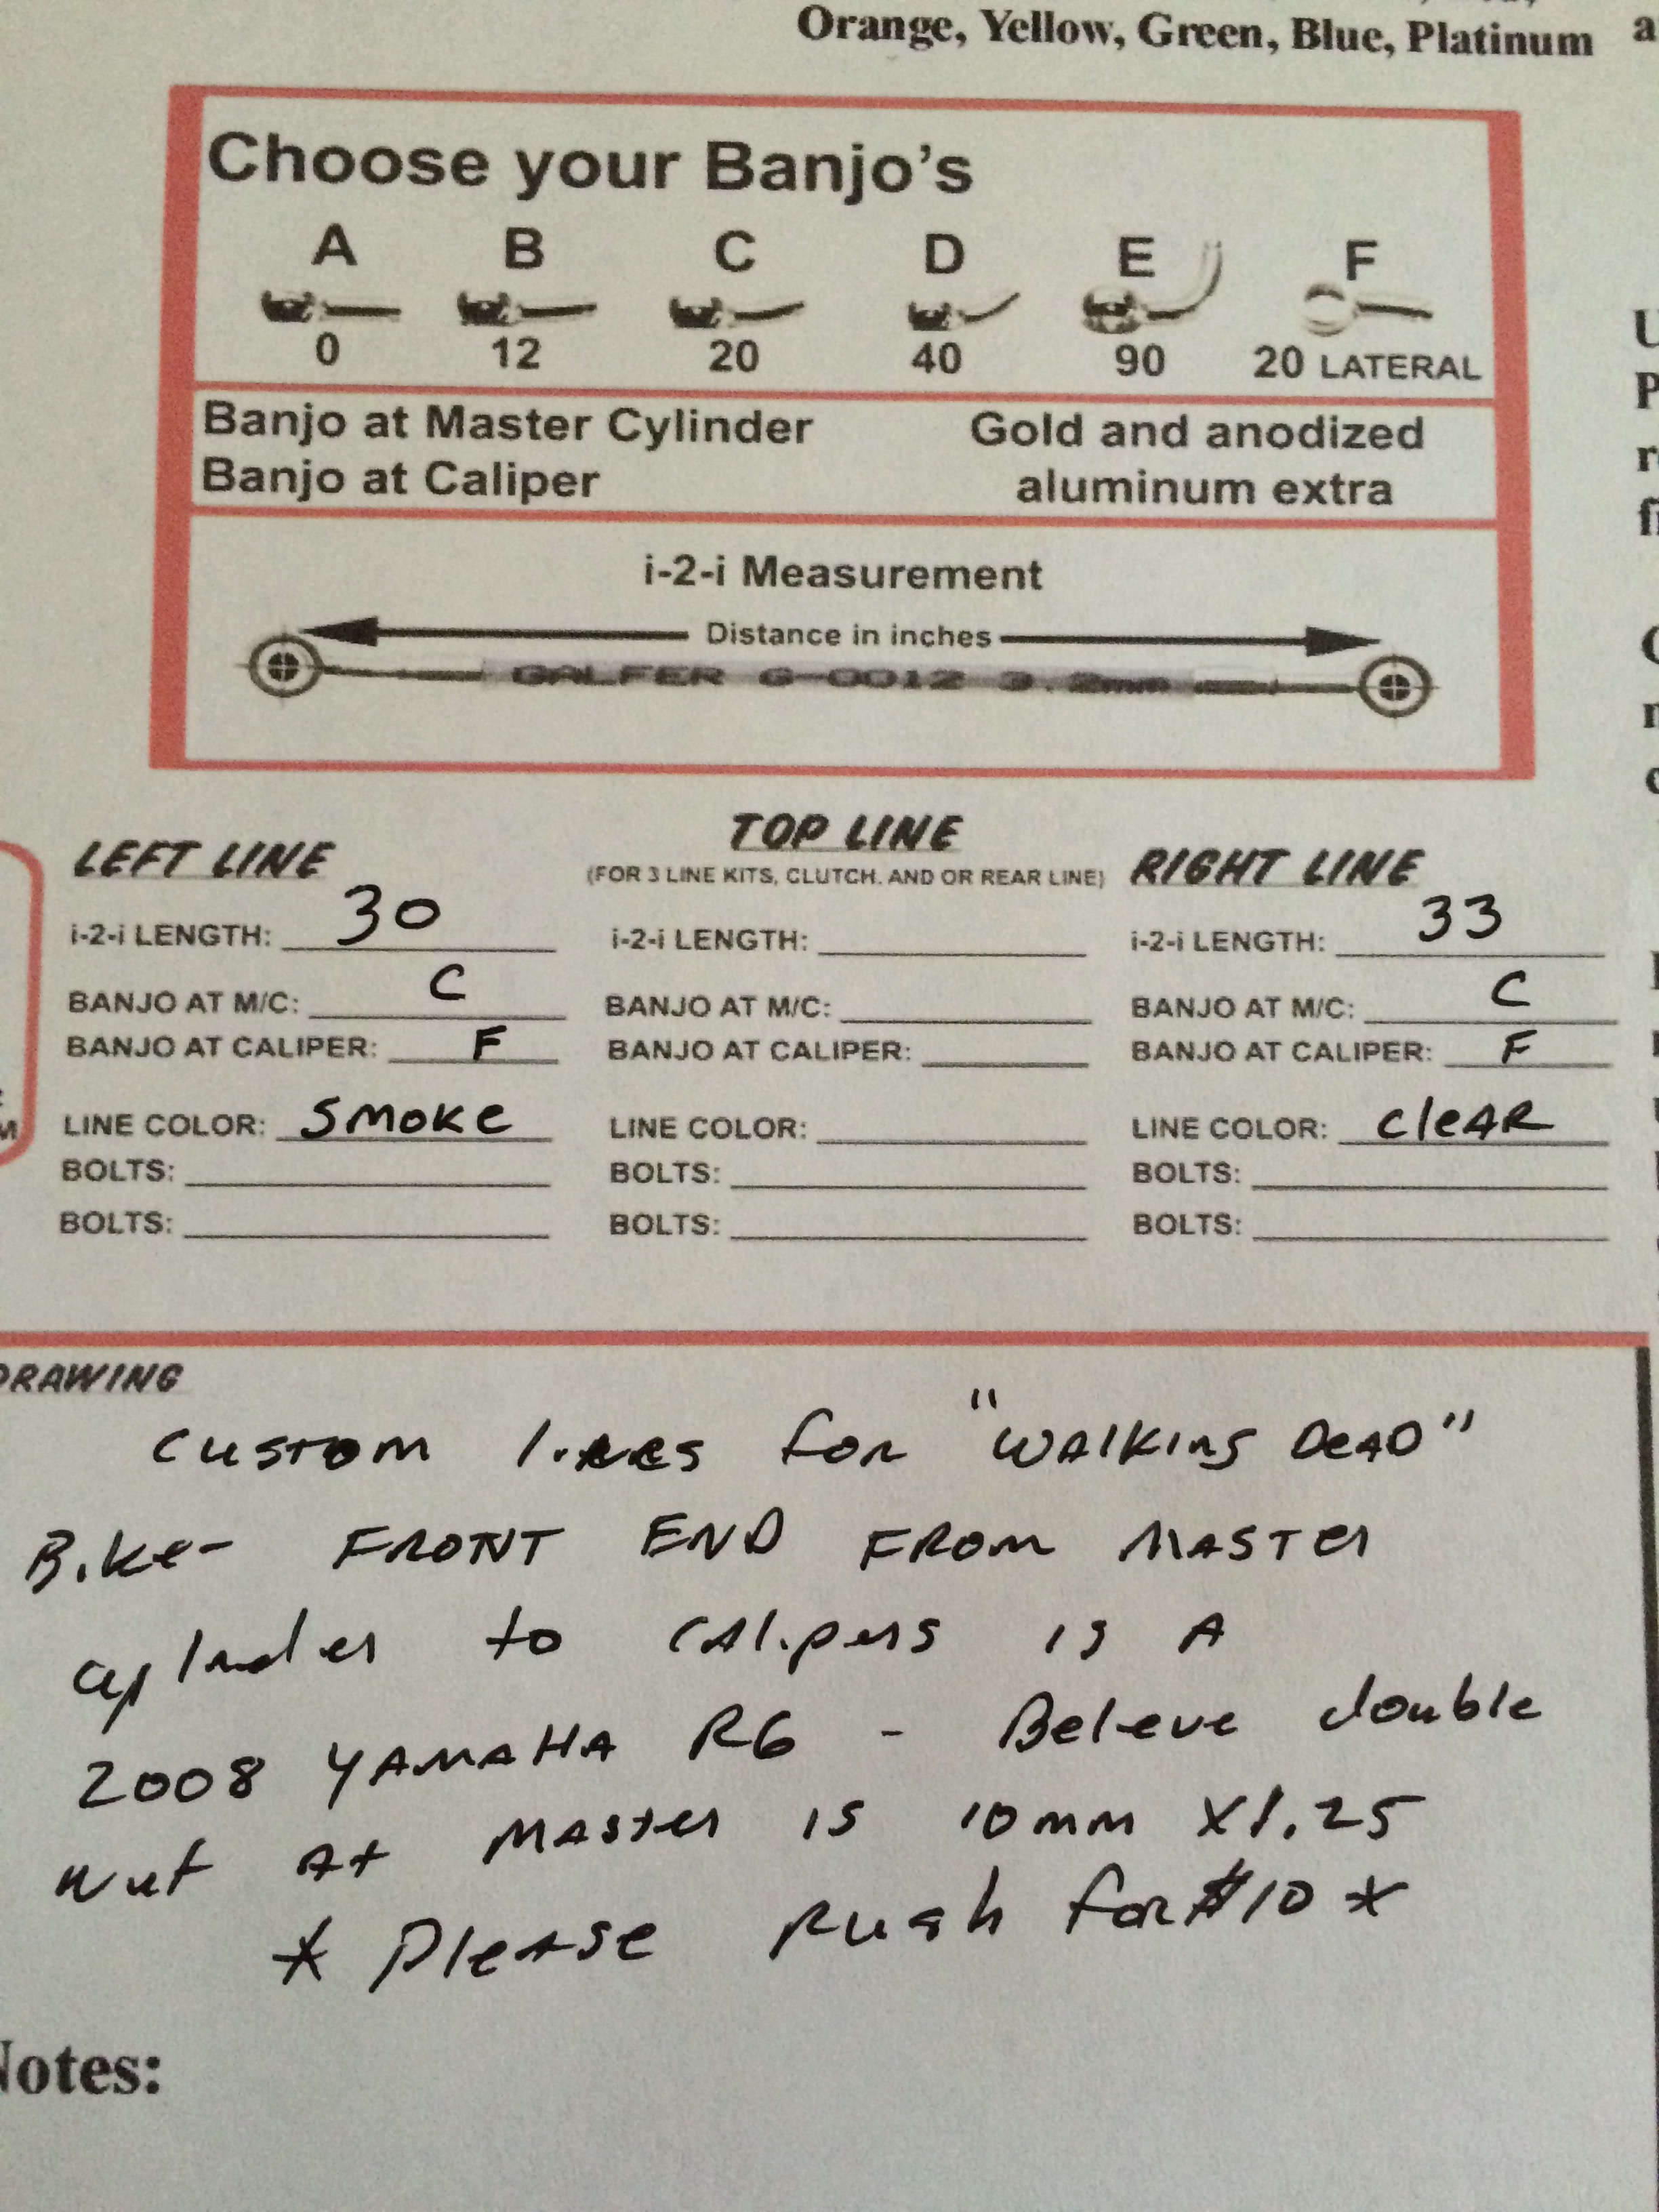 Orange, Yellow, Green, Blue, Platinum
Choose your Banjo's
A B C D E F
0 12 20 40 90 20 LATERAL
Banjo at Master Cylinder
Banjo at Caliper
Gold and anodized
aluminum extra
i-2-i Measurement
Distance in inches
GALFER G-0012 3.2mm
LEFT LINE
i-2-i LENGTH: 30
BANJO AT M/C: C
BANJO AT CALIPER: F
LINE COLOR: SMOKE
BOLTS:
BOLTS:
TOP LINE
(FOR 3 LINE KITS, CLUTCH. AND OR REAR LINE)
i-2-i LENGTH:
BANJO AT M/C:
BANJO AT CALIPER:
LINE COLOR:
BOLTS:
BOLTS:
RIGHT LINE
i-2-i LENGTH: 33
BANJO AT M/C: C
BANJO AT CALIPER: F
LINE COLOR: cleAR
BOLTS:
BOLTS:
DRAWING
custom lines for "WALKING DEAD"
Bike - FRONT END FROM MASTER
cylinder to calipers is A
2008 YAMAHA R6 - Believe double
Nut At Master is 10mm X1.25
* Please Rush for $10 *
Notes: